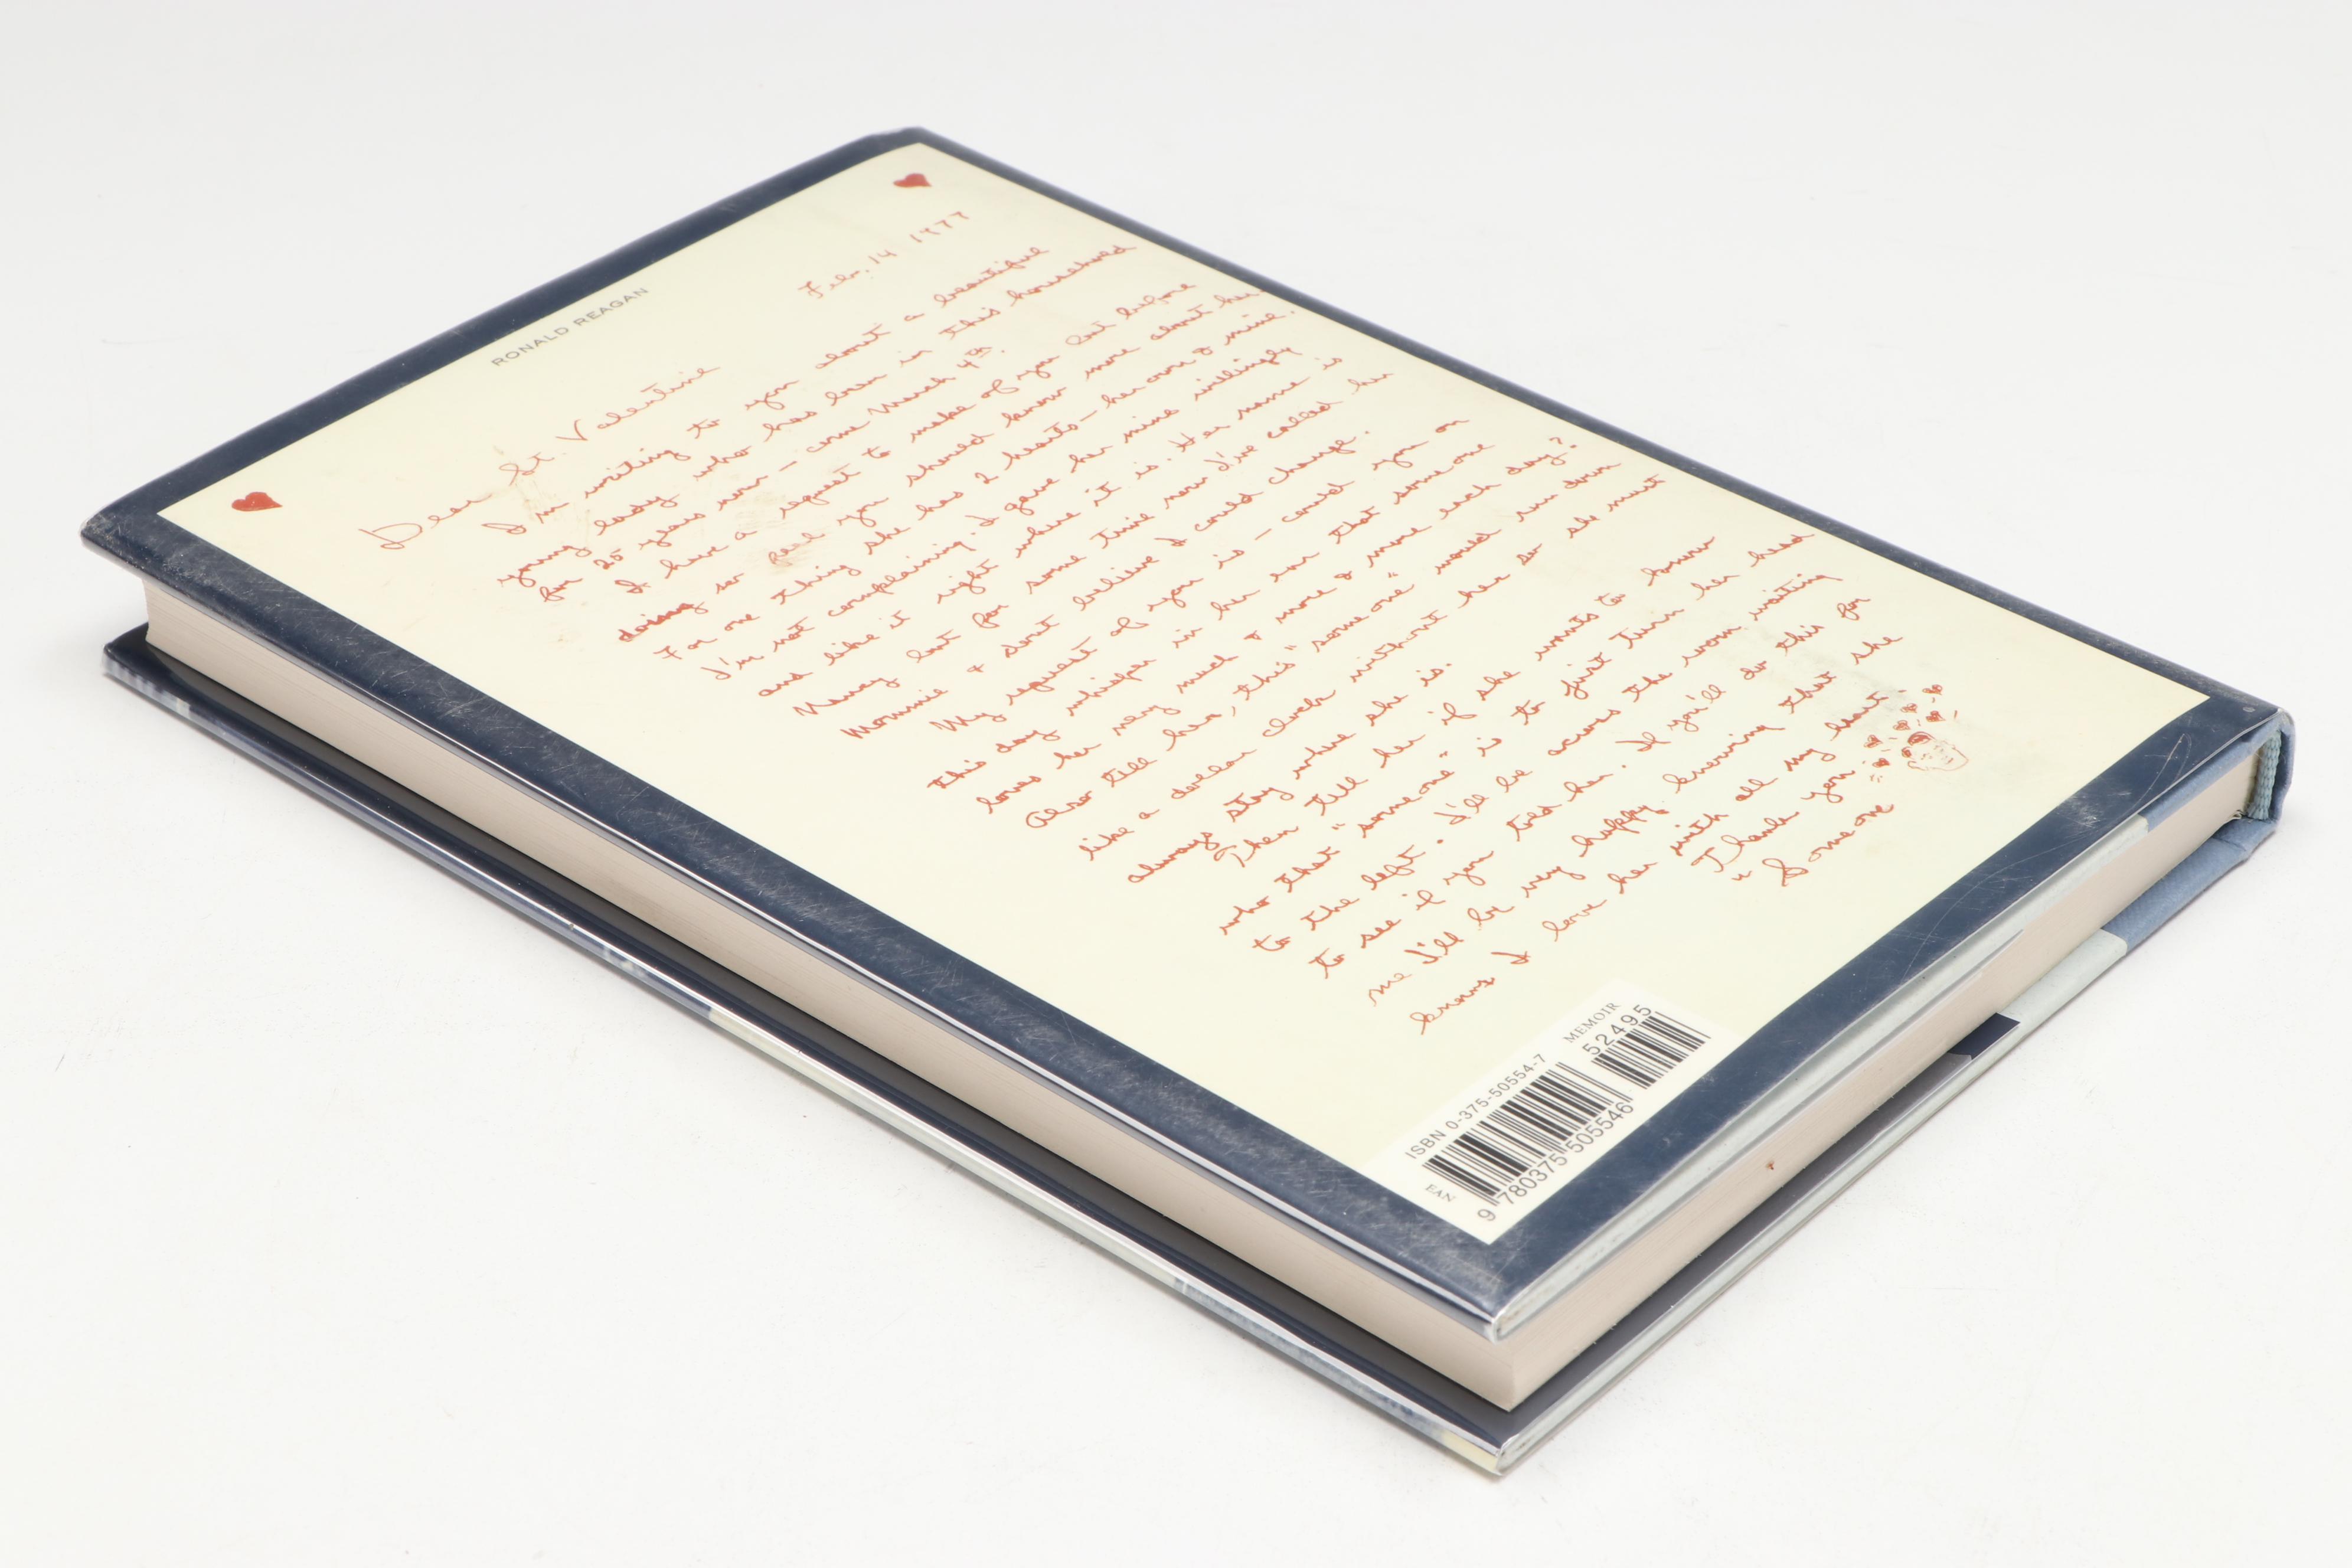 RONALD REAGAN
Feb. 14 1977
Dear St. Valentine
I'm writing to you about a beautiful
young lady who has been in this household
for 25 years now – come March 4th.
I have a request to make of you but before
doing so feel you should know more about her.
For one thing she has 2 hearts – her own & mine.
I'm not complaining. I gave her mine willingly
and like it right where it is. Her name is
Nancy but for some time now I've called her
Mommie & don't believe I could change.
My request of you is – could you on
this day whisper in her ear that someone
loves her very much & more & more each day?
Also tell her, this "someone" would run down
like a dollar clock without her so she must
always stay where she is.
Then tell her if she wants to know
who that "someone" is to just turn her head
to the left. I'll be across the room waiting
to see if you told her. If you'll do this for
me I'll be very happy knowing that she
knows I love her with all my heart.
Thank you.
"Someone"
ISBN 0-375-50554-7
MEMOIR
52495
EAN
9 780375 505546